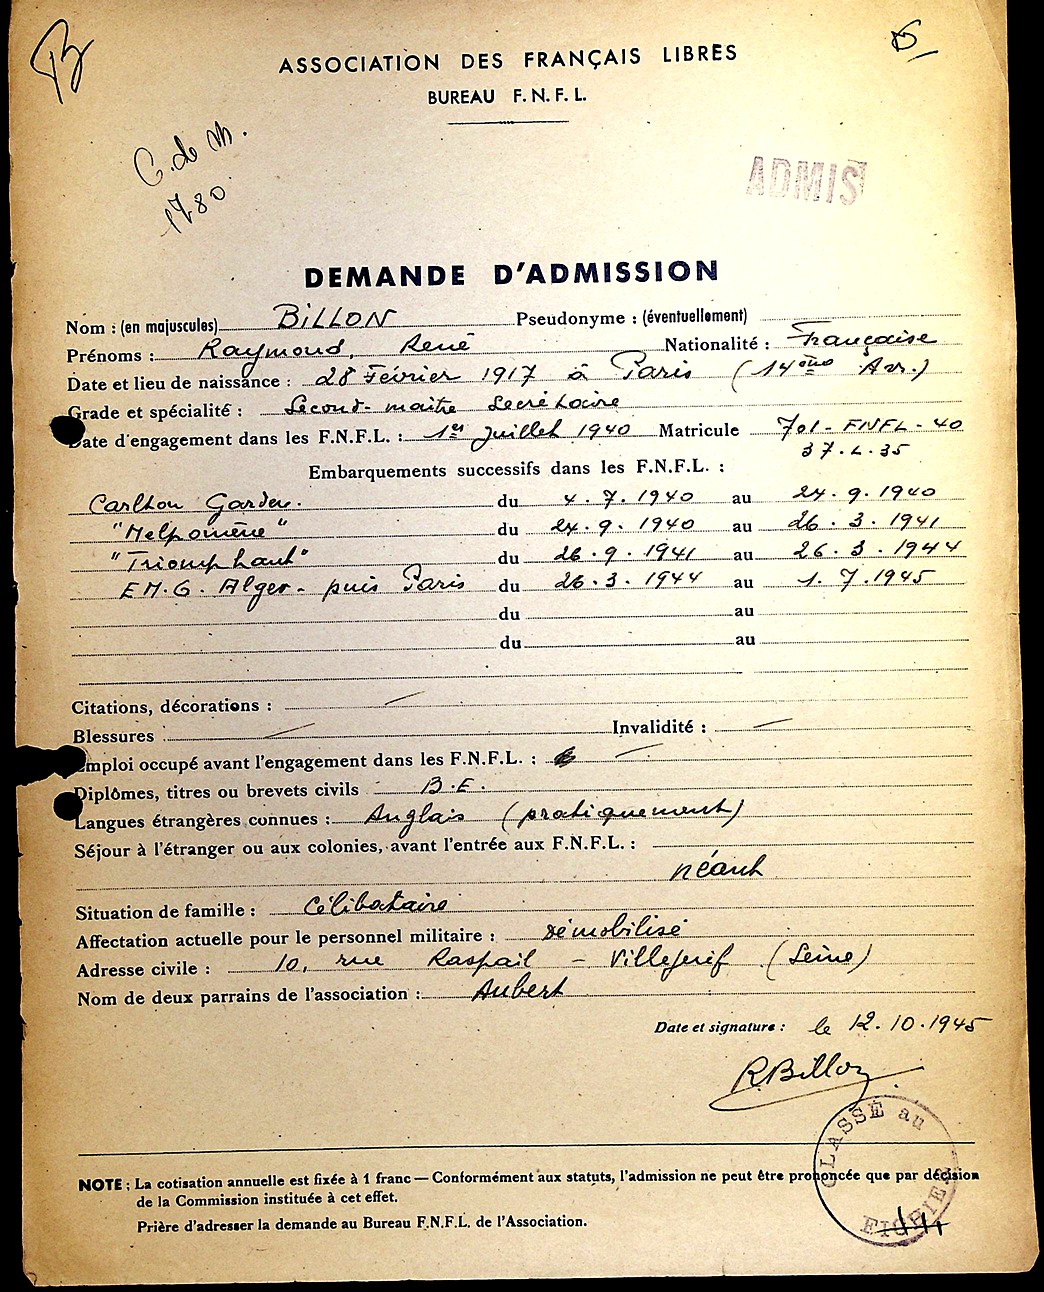 B
ASSOCIATION DES FRANÇAIS LIBRES
BUREAU F.N.F.L.
C. de M.
1780
ADMIS
DEMANDE D'ADMISSION
Nom : (en majuscules) BILLON Pseudonyme : (éventuellement)
Prénoms : Raymond, René Nationalité : Française
Date et lieu de naissance : 28 Février 1917 à Paris (14ème Arr.)
Grade et spécialité : Second-maître Secrétaire
Date d'engagement dans les F.N.F.L. : 1er Juillet 1940 Matricule 701-FNFL-40
37.L.35
Embarquements successifs dans les F.N.F.L. :
Carlton Garden. du 4.7.1940 au 24.9.1940
"Melpomène" du 24.9.1940 au 26.3.1941
"Triomphant" du 26.9.1941 au 26.3.1944
EM.G. Alger - puis Paris du 26.3.1944 au 1.7.1945
du au
du au
Citations, décorations : —
Blessures : — Invalidité : —
Emploi occupé avant l'engagement dans les F.N.F.L. : —
Diplômes, titres ou brevets civils B.E.
Langues étrangères connues : Anglais (pratiquement)
Séjour à l'étranger ou aux colonies, avant l'entrée aux F.N.F.L. :
néant
Situation de famille : Célibataire
Affectation actuelle pour le personnel militaire : démobilisé
Adresse civile : 10, rue Raspail - Villejuif (Seine)
Nom de deux parrains de l'association : Aubert
Date et signature : le 12.10.1945
R.Billon
CLASSÉ au FICHIER
NOTE : La cotisation annuelle est fixée à 1 franc — Conformément aux statuts, l'admission ne peut être prononcée que par décision
de la Commission instituée à cet effet.
Prière d'adresser la demande au Bureau F.N.F.L. de l'Association.